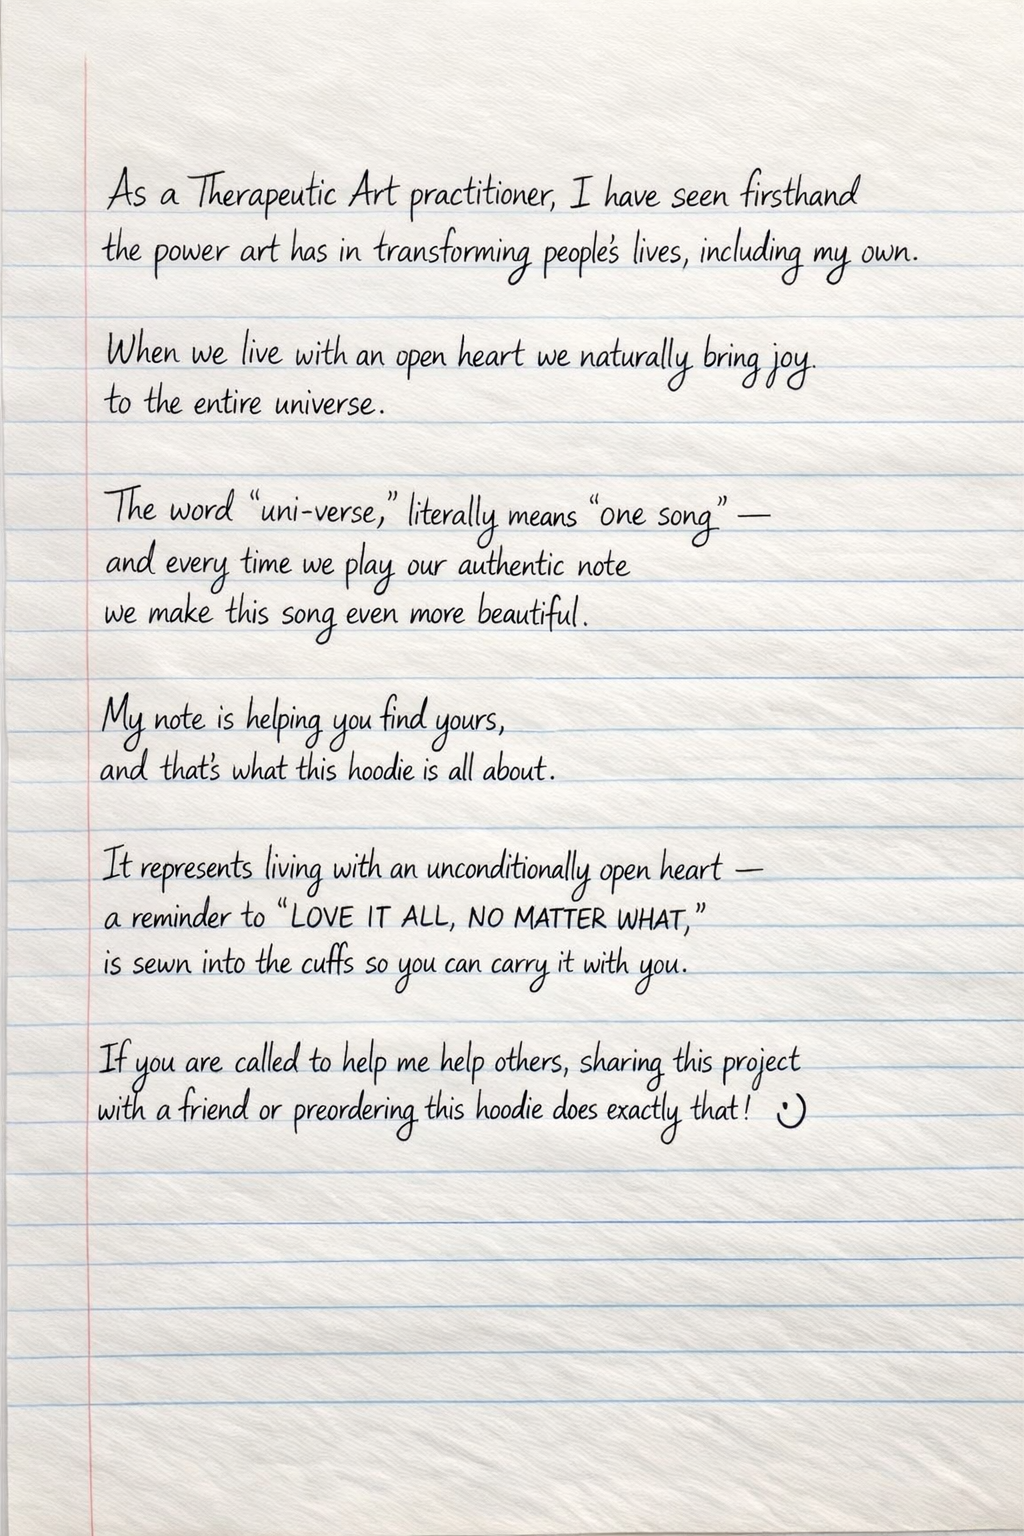 As a Therapeutic Art practitioner, I have seen firsthand
the power art has in transforming people's lives, including my own.
When we live with an open heart we naturally bring joy.
to the entire universe.
The word “uni-verse,” literally means “one song” —
and every time we play our authentic note
we make this song even more beautiful.
My note is helping you find yours,
and that's what this hoodie is all about.
It represents living with an unconditionally open heart —
a reminder to “LOVE IT ALL, NO MATTER WHAT,”
is sewn into the cuffs so you can carry it with you.
If you are called to help me help others, sharing this project
with a friend or preordering this hoodie does exactly that! :)